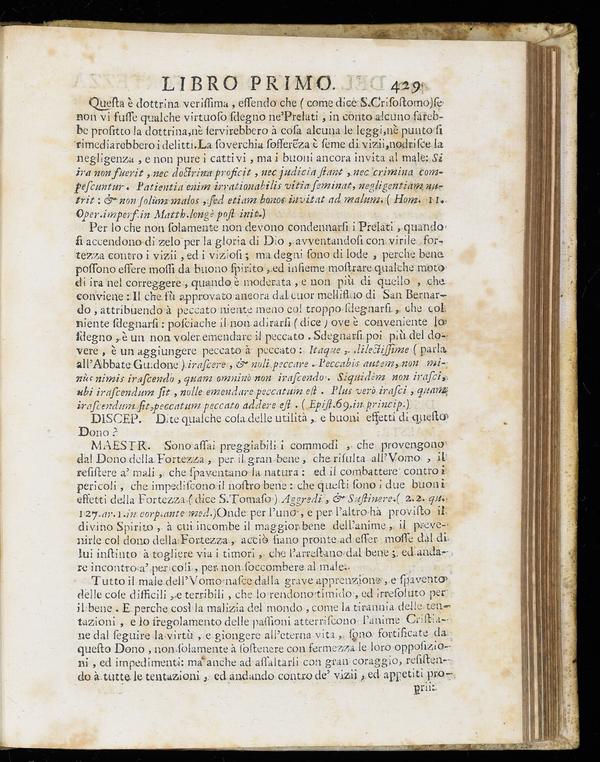 LIBRO PRIMO. 429
Queſta è dottrina veriſſima, eſſendo che (come dice S.Criſoſtomo)ſe
non vi fuſſe qualche virtuoſo ſdegno ne'Prelati, in conto alcuno ſareb-
be profitto la dottrina,nè ſervirebbero à coſa alcuna le leggi,nè punto ſi
rimediarebbero i delitti.La ſoverchia ſofferẽza è ſeme di vizii,nodriſce la
negligenza, e non pure i cattivi, ma i buoni ancora invita al male: Si
ira non fuerit, nec doctrina proficit, nec judicia ſtant, nec crimina com-
peſcuntur. Patientia enim irrationabilis vitia ſeminat, negligentiam nu-
trit: & non ſolùm malos, ſed etiam bonos invitat ad malum. (Hom. 11.
Oper.imperf.in Matth.longè poſt init.)
Per lo che non ſolamente non devono condennarſi i Prelati, quando
ſi accendono di zelo per la gloria di Dio, avventandoſi con virile for-
tezza contro i vizii, ed i vizioſi; ma degni ſono di lode, perche bene
poſſono eſſere moſſi da buono ſpirito, ed inſieme moſtrare qualche moto
di ira nel correggere, quando è moderata, e non più di quello, che
conviene: Il che fù approvato ancora dal cuor mellifluo di San Bernar-
do, attribuendo à peccato niente meno col troppo ſdegnarſi, che col
niente ſdegnarſi: poſciache il non adirarſi (dice) ove è conveniente lo
ſdegno, è un non voler emendare il peccato. Sdegnarſi poi più del do-
vere, è un aggiungere peccato à peccato: Itaque, dilectiſſime (parla
all'Abbate Guidone) iraſcere, & noli peccare. Peccabis autem, non mi-
nùs nimis iraſcendo, quam omninò non iraſcendo. Siquidem non iraſci,
ubi iraſcendum ſit, nolle emendare peccatum eſt. Plus verò iraſci, quam
iraſcendum ſit,peccatum peccato addere eſt. (Epiſt.69.in princip.)
DISCEP. Dite qualche coſa delle utilità, e buoni effetti di queſto
Dono?
MAESTR. Sono aſſai preggiabili i commodi, che provengono
dal Dono della Fortezza, per il gran bene, che riſulta all'Vomo, il
reſiſtere a' mali, che ſpaventano la natura: ed il combattere contro i
pericoli, che impediſcono il noſtro bene: che queſti ſono i due buoni
effetti della Fortezza (dice S.Tomaſo) Aggredi, & Suſtinere.(2.2. qu.
127.ar.1.in corp.ante med.)Onde per l'uno, e per l'altro hà proviſto il
divino Spirito, à cui incombe il maggior bene dell'anime, il preve-
nirle col dono della Fortezza, acciò ſiano pronte ad eſſer moſſe dal di
lui inſtinto à togliere via i timori, che l'arreſtano dal bene; ed anda-
re incontro a' pericoli, per non ſoccombere al male.
Tutto il male dell'Vomo naſce dalla grave apprenzione, e ſpavento
delle coſe difficili, e terribili, che lo rendono timido, ed irreſoluto per
il bene. E perche così la malizia del mondo, come la tirannia delle ten-
tazioni, e lo ſregolamento delle paſſioni atterriſcono l'anime Criſtia-
ne dal ſeguire la virtù, e giongere all'eterna vita, ſono fortificate da
queſto Dono, non ſolamente à ſoſtenere con fermezza le loro oppoſizio-
ni, ed impedimenti: ma anche ad aſſaltarli con gran coraggio, reſiſten-
do à tutte le tentazioni, ed andando contro de' vizii, ed appetiti pro-
prii: